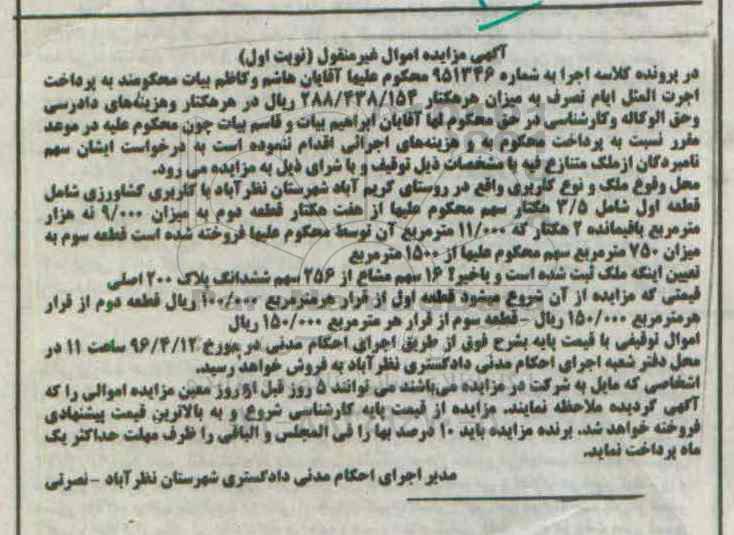 آگهی مزایده اموال غیرمنقول (نوبت اول)
در پرونده کلاسه اجرا به شماره ۹۵۱۳۴۶ محکوم علیها آقایان هاشم وکاظم بیات محکومند به پرداخت
اجرت المثل ایام تصرف به میزان هرهکتار ۲۸۸/۴۳۸/۱۵۴ ریال در هرهکتار وهزینه‌های دادرسی
وحق الوکاله وکارشناسی در حق محکوم لها آقایان ابراهیم بیات و قاسم بیات چون محکوم علیه در موعد
مقرر نسبت به پرداخت محکوم به و هزینه‌های اجرائی اقدام ننموده است به درخواست ایشان سهم
نامبردگان ازملک متنازع فیه با مشخصات ذیل توقیف و با شرای ذیل به مزایده می رود.
محل وقوع ملک و نوع کاربری واقع در روستای کریم آباد شهرستان نظرآباد با کاربری کشاورزی شامل
قطعه اول شامل ۳/۵ هکتار سهم محکوم علیها از هفت هکتار قطعه دوم به میزان ۹/۰۰۰ نه هزار
مترمربع باقیمانده ۲ هکتار که ۱۱/۰۰۰ مترمربع آن توسط محکوم علیها فروخته شده است قطعه سوم به
میزان ۷۵۰ مترمربع سهم محکوم علیها از ۱۵۰۰ مترمربع
تعیین اینکه ملک ثبت شده است و یاخیر؟ ۱۶ سهم مشاع از ۲۵۶ سهم ششدانگ پلاک ۲۰۰ اصلی
قیمتی که مزایده از آن شروع میشود قطعه اول از قرار هرمترمربع ۱۰۰/۰۰۰ ریال قطعه دوم از قرار
هرمترمربع ۱۵۰/۰۰۰ ریال - قطعه سوم از قرار هر مترمربع ۱۵۰/۰۰۰ ریال
اموال توقیفی با قیمت پایه بشرح فوق از طریق اجرای احکام مدنی در مورخ ۹۶/۴/۱۲ ساعت ۱۱ در
محل دفتر شعبه اجرای احکام مدنی دادگستری نظرآباد به فروش خواهد رسید.
اشخاصی که مایل به شرکت در مزایده می‌باشند می توانند ۵ روز قبل از روز معین مزایده اموالی را که
آگهی گردیده ملاحظه نمایند. مزایده از قیمت پایه کارشناسی شروع و به بالاترین قیمت پیشنهادی
فروخته خواهد شد. برنده مزایده باید ۱۰ درصد بها را فی المجلس و الباقی را ظرف مهلت حداکثر یک
ماه پرداخت نماید.
مدیر اجرای احکام مدنی دادگستری شهرستان نظرآباد -نصرتی